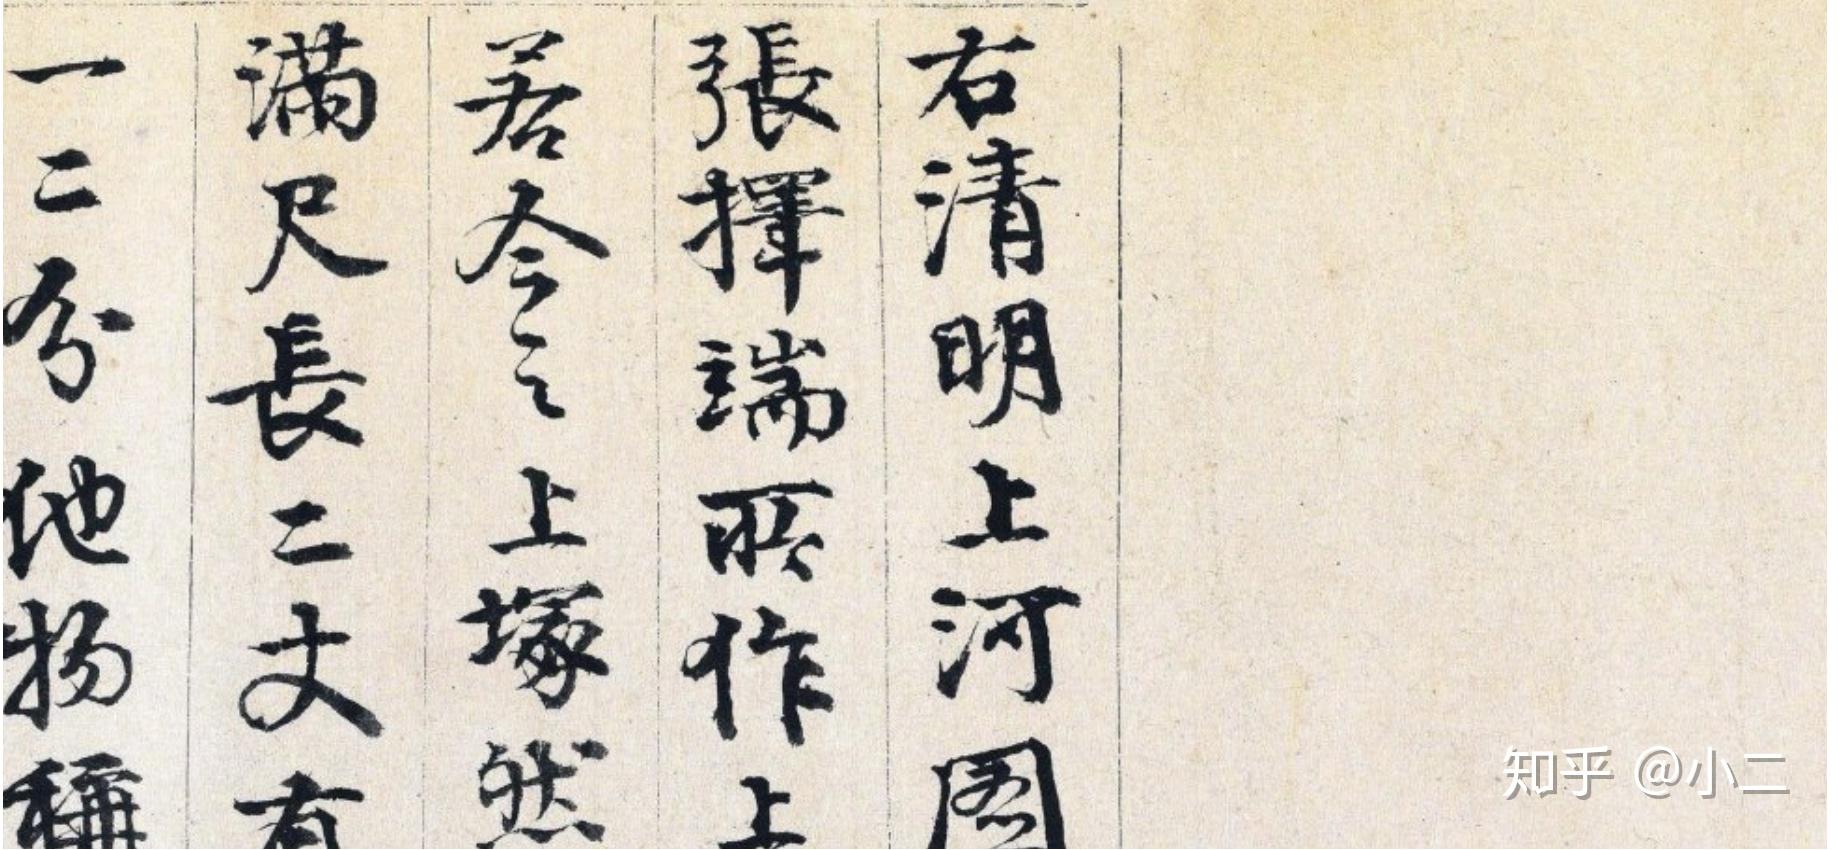 右清明上河图
張擇端所作上
若今之上塚然
滿尺長二丈有
一二分他物稱
知乎 @小二